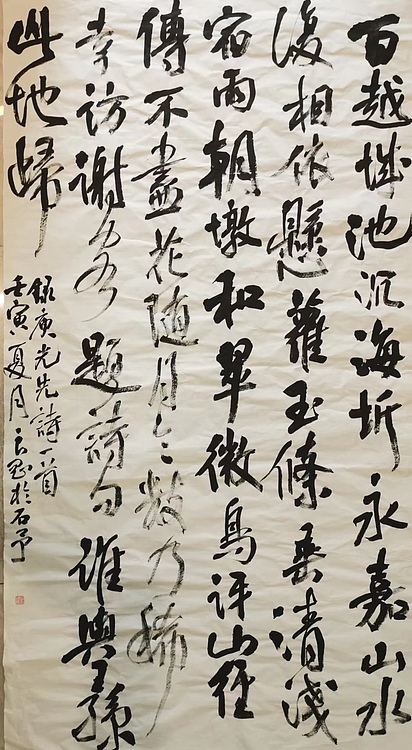 百越城池沉海圻永嘉山水
復相依懸蘿玉條垂清淺
宿雨朝墩和翠微鳥評山徑
傳不盡花隨月令數乃稀
幸訪謝客題詩句誰與王孫
此地歸
錄庾光先詩一首
壬寅夏月於石予